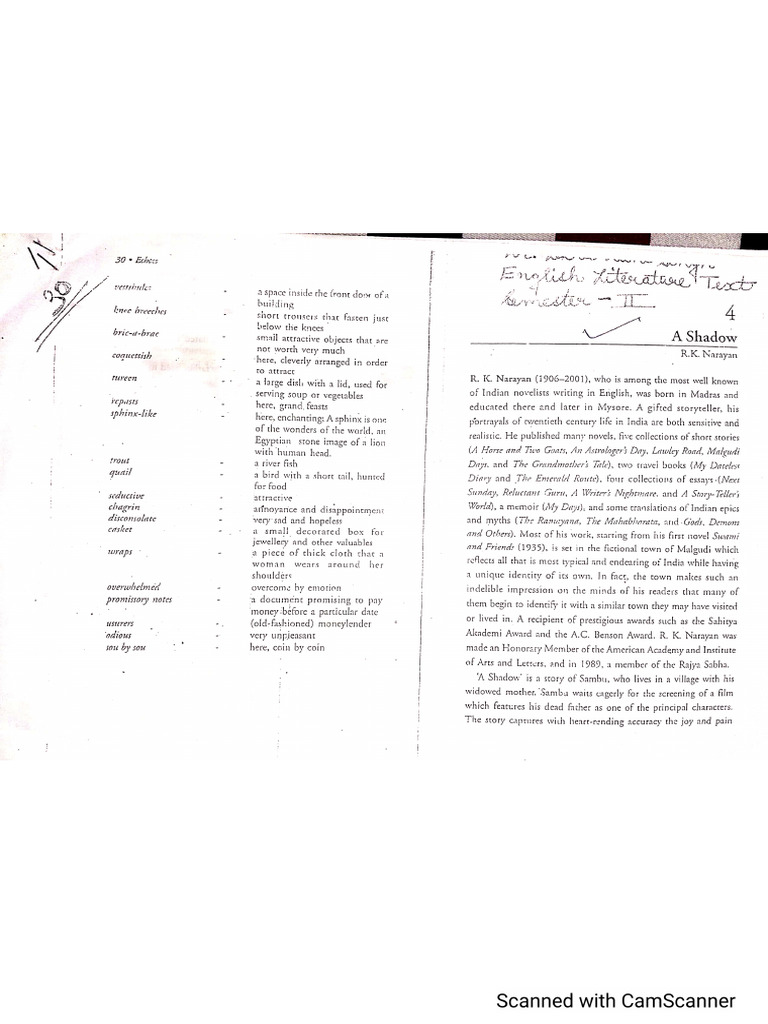 11
30
30 • Echoes
vestibule - a space inside the front door of a
building
knee breeches - short trousers that fasten just
below the knees
bric-a-brac - small attractive objects that are
not worth very much
coquettish - here, cleverly arranged in order
to attract
tureen - a large dish with a lid, used for
serving soup or vegetables
repasts - here, grand feasts
sphinx-like - here, enchanting; A sphinx is one
of the wonders of the world, an
Egyptian stone image of a lion
with human head.
trout - a river fish
quail - a bird with a short tail, hunted
for food
seductive - attractive
chagrin - annoyance and disappointment
disconsolate - very sad and hopeless
casket - a small decorated box for
jewellery and other valuables
wraps - a piece of thick cloth that a
woman wears around her
shoulders
overwhelmed - overcome by emotion
promissory notes - a document promising to pay
money before a particular date
usurers - (old-fashioned) moneylender
odious - very unpleasant
sou by sou - here, coin by coin
English Literature Text
Semester - II
4
A Shadow
R.K. Narayan
R. K. Narayan (1906–2001), who is among the most well known
of Indian novelists writing in English, was born in Madras and
educated there and later in Mysore. A gifted storyteller, his
portrayals of twentieth century life in India are both sensitive and
realistic. He published many novels, five collections of short stories
(A Horse and Two Goats, An Astrologer's Day, Lawley Road, Malgudi
Days, and The Grandmother's Tale), two travel books (My Dateless
Diary and The Emerald Route), four collections of essays (Next
Sunday, Reluctant Guru, A Writer's Nightmare, and A Story-Teller's
World), a memoir (My Days), and some translations of Indian epics
and myths (The Ramayana, The Mahabharata, and Gods, Demons
and Others). Most of his work, starting from his first novel Swami
and Friends (1935), is set in the fictional town of Malgudi which
reflects all that is most typical and endearing of India while having
a unique identity of its own. In fact, the town makes such an
indelible impression on the minds of his readers that many of
them begin to identify it with a similar town they may have visited
or lived in. A recipient of prestigious awards such as the Sahitya
Akademi Award and the A.C. Benson Award, R. K. Narayan was
made an Honorary Member of the American Academy and Institute
of Arts and Letters, and in 1989, a member of the Rajya Sabha.
'A Shadow' is a story of Sambu, who lives in a village with his
widowed mother. Sambu waits eagerly for the screening of a film
which features his dead father as one of the principal characters.
The story captures with heart-rending accuracy the joy and pain
Scanned with CamScanner